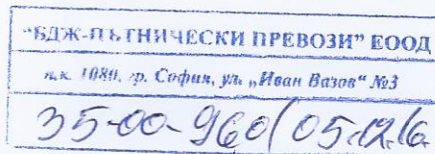 “БДЖ-ПЪТНИЧЕСКИ ПРЕВОЗИ” ЕООД
п.к. 1080, гр. София, ул. „Иван Вазов“ №3
35-00-960/05.12.16